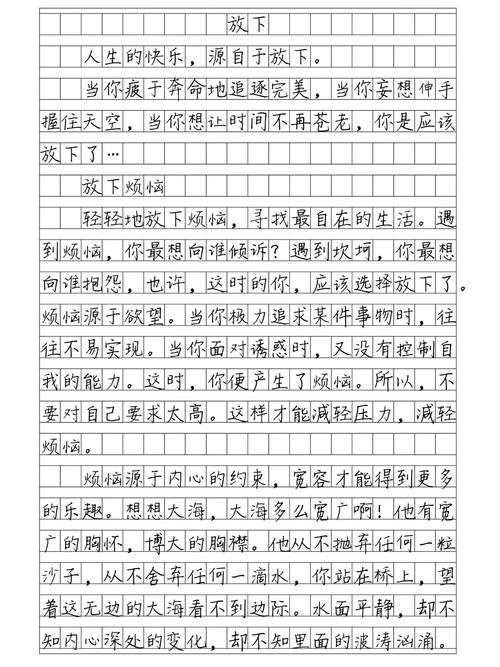 放下
人生的快乐，源自于放下。
当你疲于奔命地追逐完美，当你妄想伸手
握住天空，当你想让时间不再苍老，你是应该
放下了…
放下烦恼
轻轻地放下烦恼，寻找最自在的生活。遇
到烦恼，你最想向谁倾诉？遇到坎坷，你最想
向谁抱怨，也许，这时的你，应该选择放下了。
烦恼源于欲望。当你极力追求某件事物时，往
往不易实现。当你面对诱惑时，又没有控制自
我的能力。这时，你便产生了烦恼。所以，不
要对自己要求太高。这样才能减轻压力，减轻
烦恼。
烦恼源于内心的约束，宽容才能得到更多
的乐趣。想想大海，大海多么宽广啊！他有宽
广的胸怀，博大的胸襟。他从不抛弃任何一粒
沙子，从不舍弃任何一滴水，你站在桥上，望
着这无边的大海看不到边际。水面平静，却不
知内心深处的变化，却不知里面的波涛汹涌。